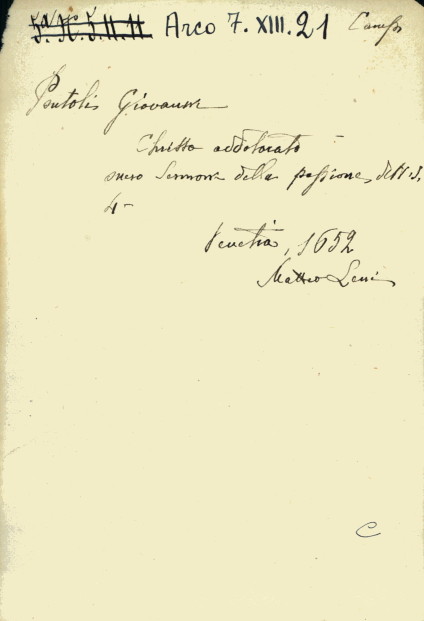 Arco 7. XIII. 21
Giovanni
Christo addolorato
overo Sermone della passione, dell
4-
Venetia, 1652
Matteo Leni
C